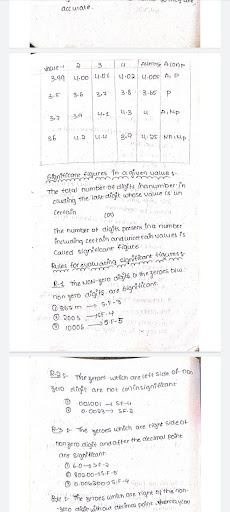 accurate.
value-1 2 3 4 Average A/or P
3.99 4.00 4.01 4.02 4.005 A, P
3.5 3.6 3.7 3.8 3.65 P
3.7 3.9 4.1 4.3 4 A, NP
3.6 4.2 4.4 4.25 NA, NP
Significant figures in a given value :-
The total number of digits in a number in
cluding the last digit whose value is un
certain
(or)
The number of digits present in a number
including certain and uncertain values is
called significant figure
Rules for evaluating significant figures :-
R-1 The non-zero digits & the zeroes b/w
non zero digits are significant
① 863 m → S.F-3
② 2003 → S.F-4
③ 10006 → S.F-5
R-2 :- The zeroes which are left side of non
zero digit are not significant
① → S.F-4
② 0.0023 → S.F.2
R-3 :- The zeroes which are right side of
non zero digit and after the decimal point
are significant.
① 6.0 → S.F-2
② → S.F-5
③ → S.F-5
:- The zeroes which are right of the non-
zero digit without decimal point, they